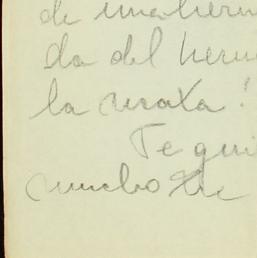 de una herm
da del herm
la
Te qui
mucho tu